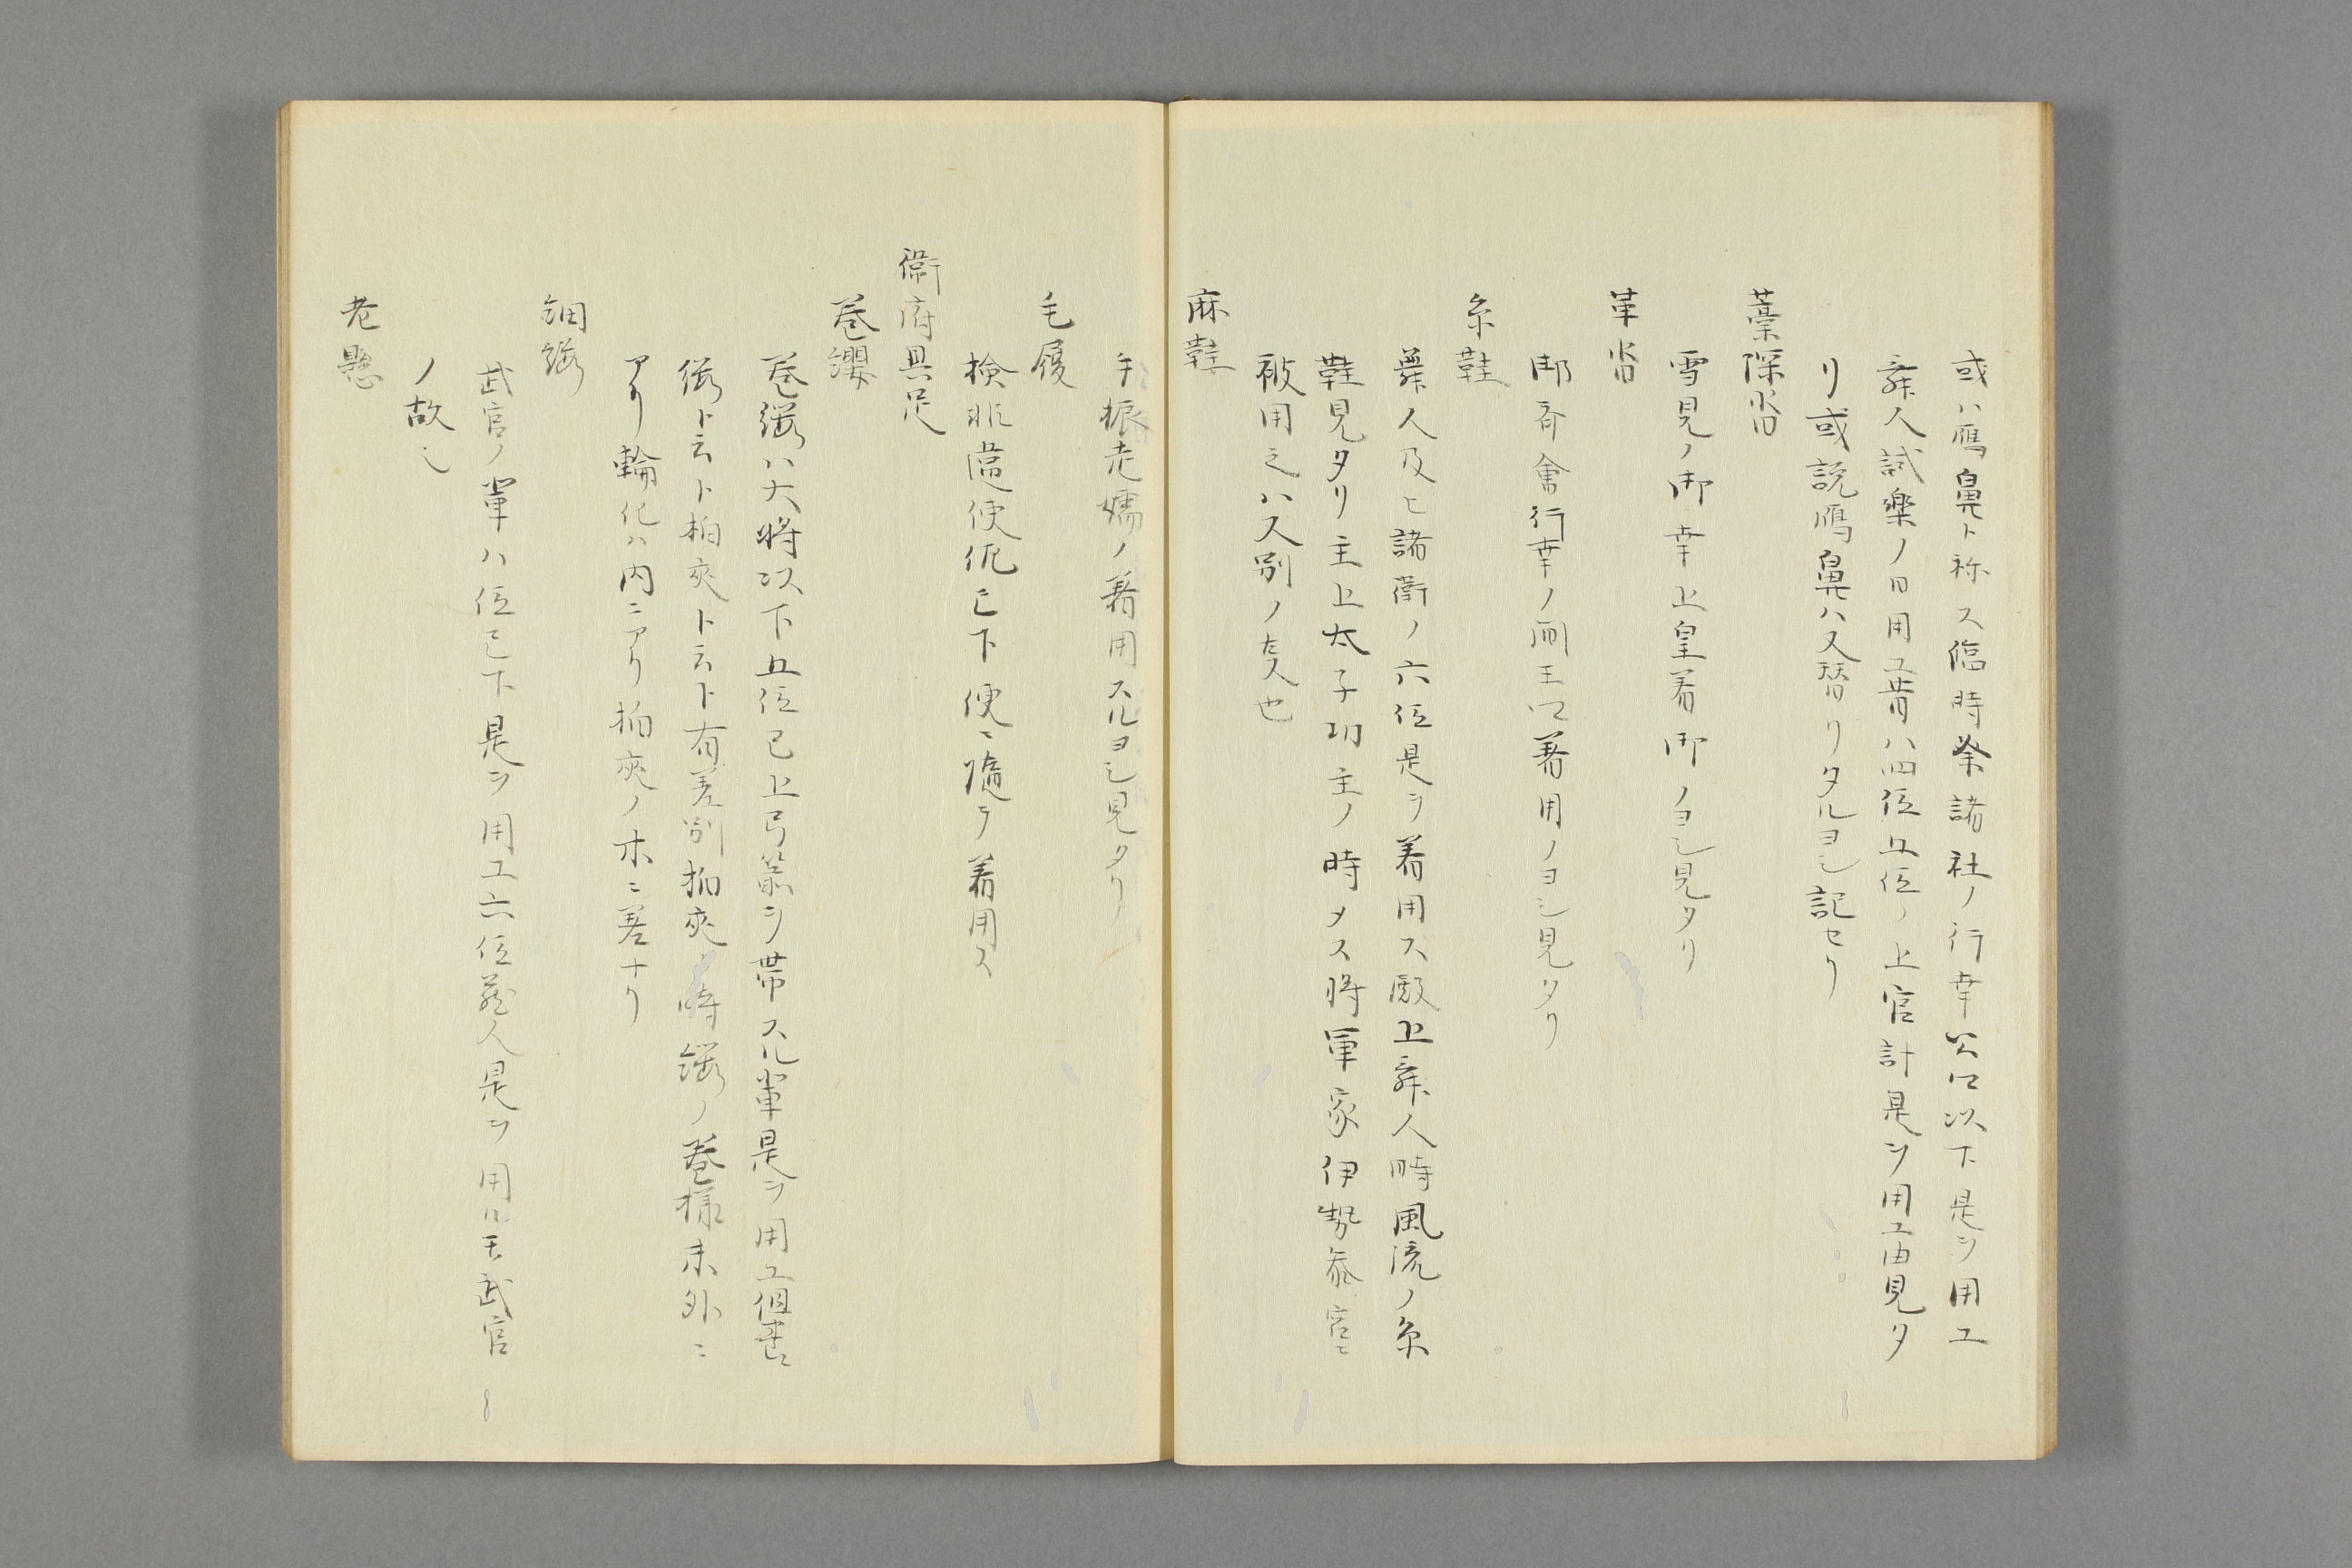 或ハ鴈鼻ト称ス臨時祭諸社ノ行幸公卿以下是ヲ用エ
舞人試樂ノ日用エ昔ハ四位五位ノ上官計是ヲ用エ由見タ
リ或説鴈鼻ハ又替リタルヨシ記セリ
藁深沓
雪見ノ御幸上皇着御ノヨシ見タリ
革沓
御斎會行幸ノ間王卿著用ノヨシ見タリ
糸鞋
舞人及ヒ諸衛ノ六位是ヲ着用ス殿上舞人時風流ノ糸
鞋見タリ主上太子幼主ノ時メス将軍家伊勢参宮ニ
被用之ハ又別ノ支也
麻鞋
手振走孺ノ著用スルヨシ見タリ
毛履
検非違使佐已下便ニ隨テ着用ス
衛府具足
巻纓
巻纓ハ大将以下五位已上弓箭ヲ帯スル輩是ヲ用エ但巻
纓ト云ト柏夾ト云ト有差別柏夾ノ時纓ノ巻様末外ニ
アリ輪化ハ内ニアリ柏夾ノ木ニ差ナリ
細纓
武官ノ輩六位已下是ヲ用エ六位蔵人是ヲ用ルモ武官
ノ故也
老懸